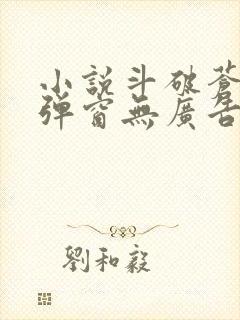 小說斗破蒼
彈窗無廣告
劉和毅